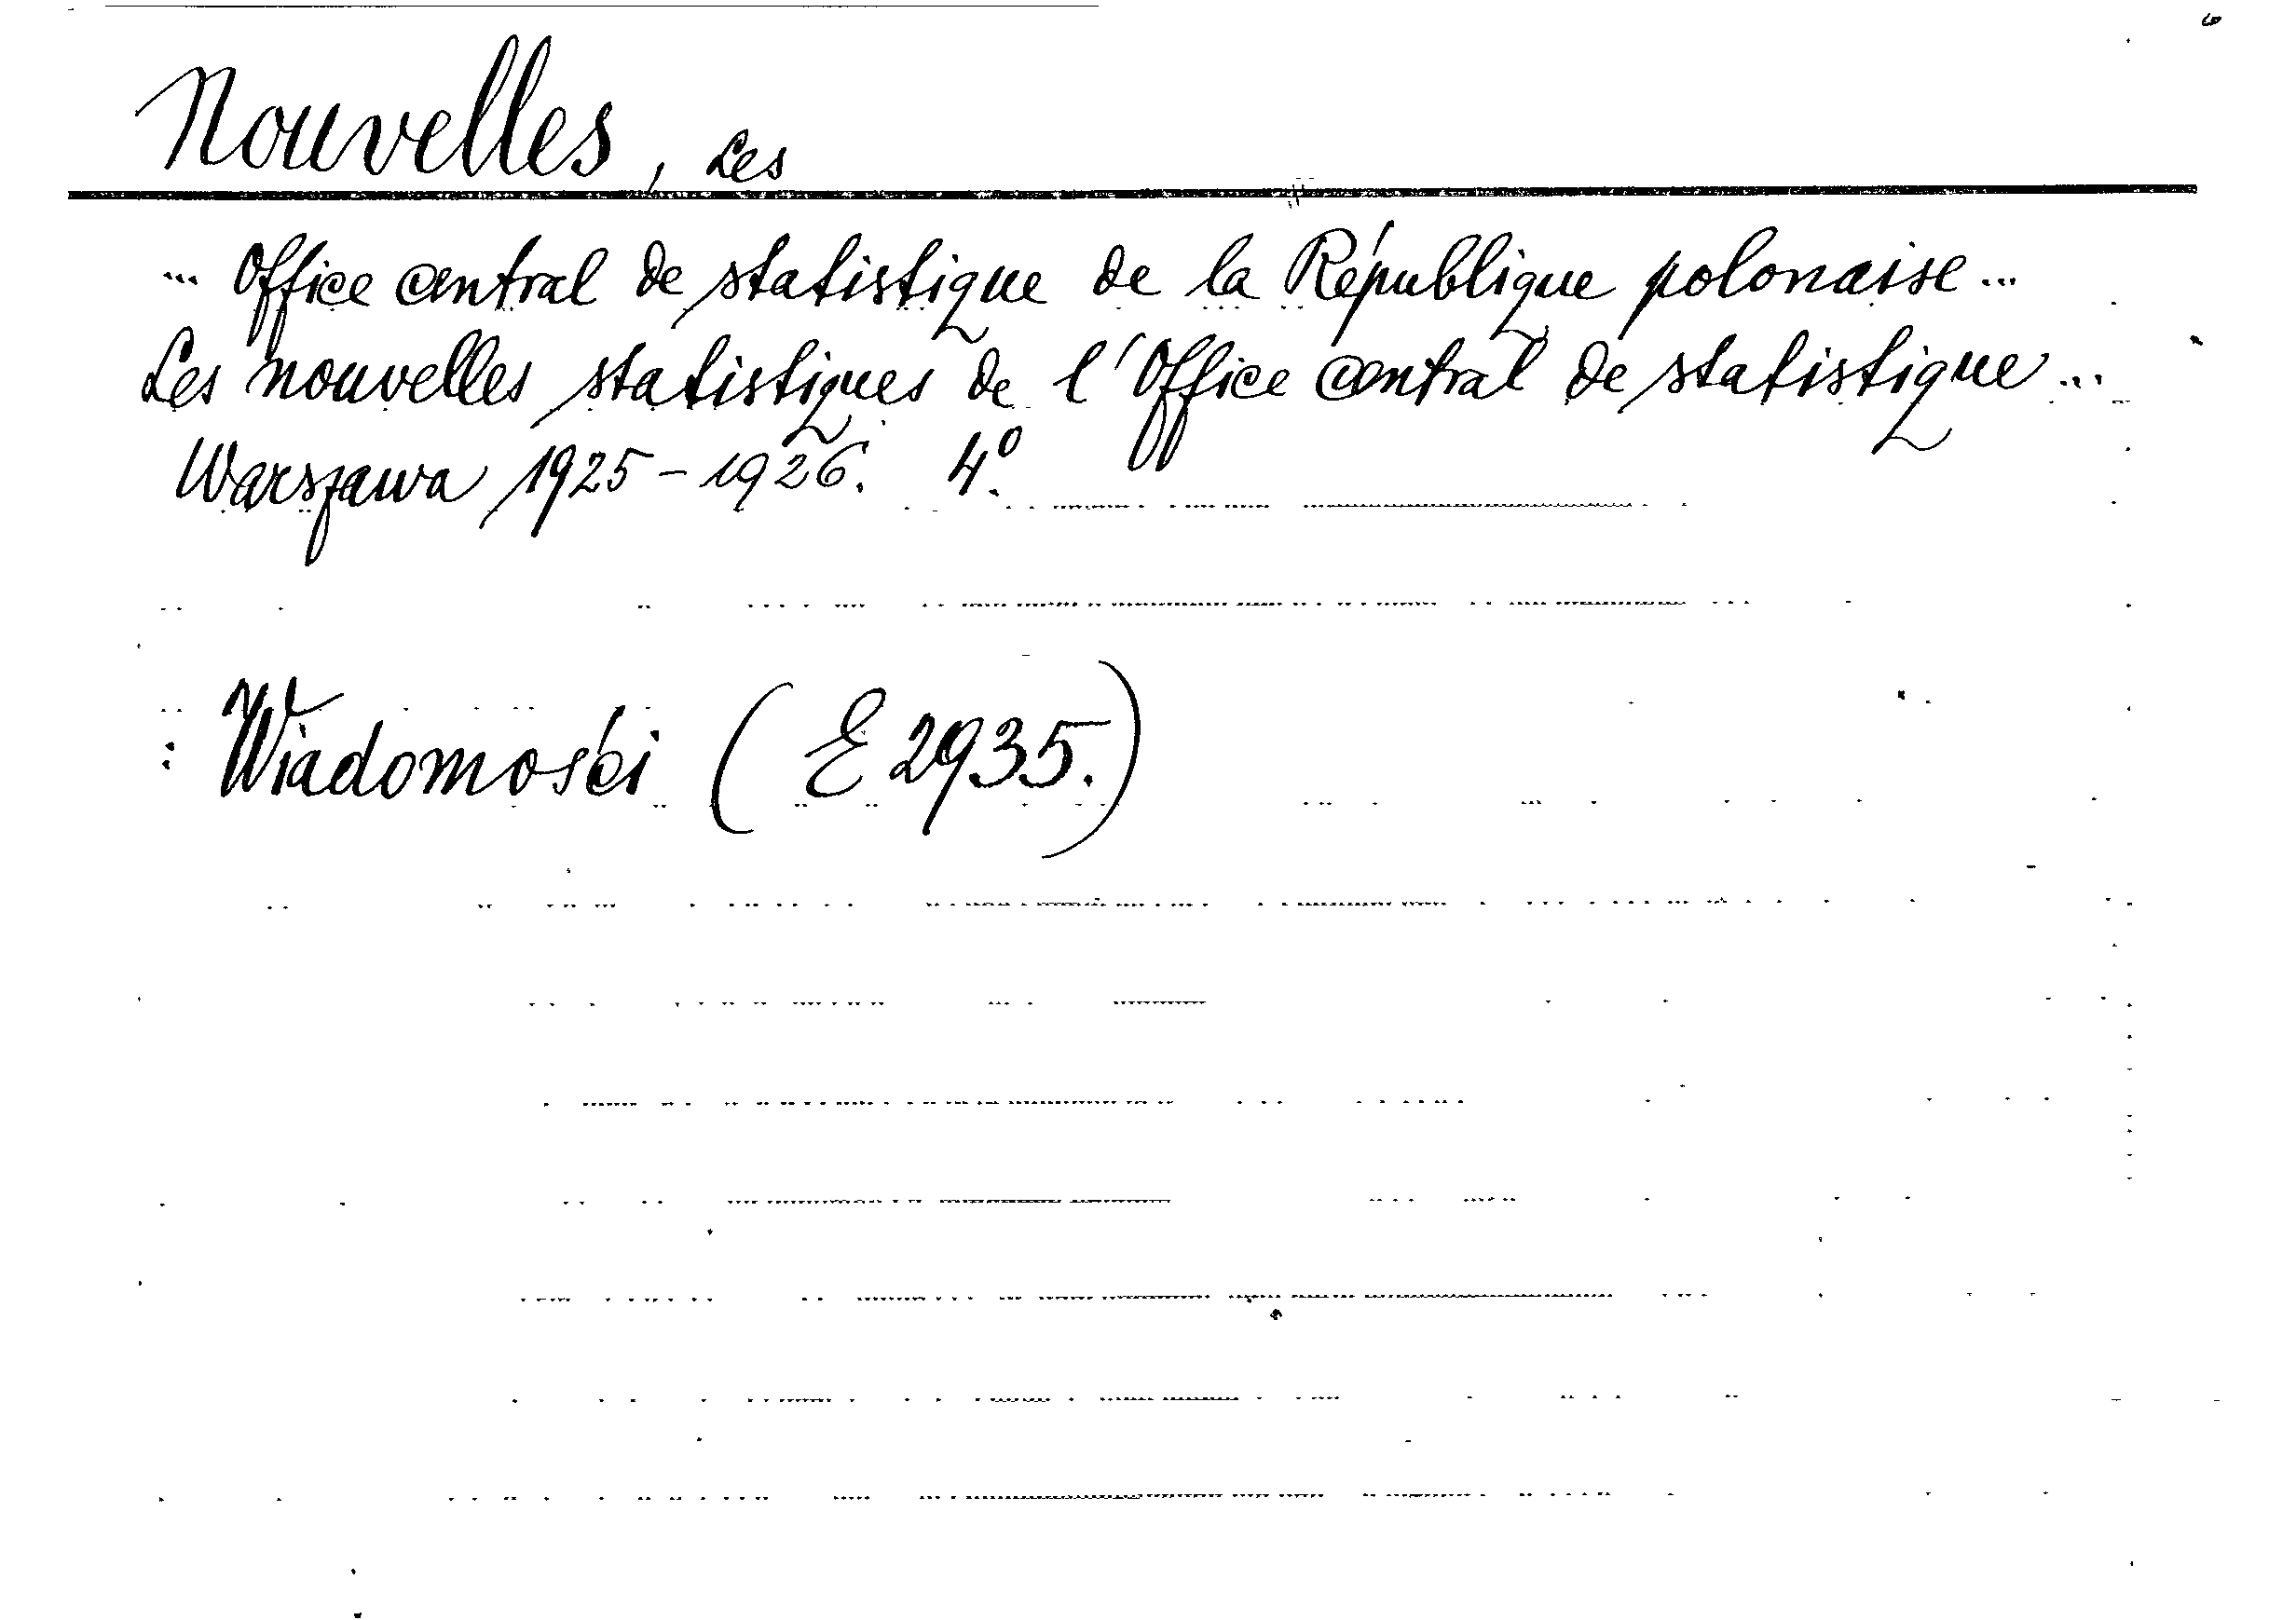 Nouvelles, Les
... Office central de statistique de la République polonaise ...
Les nouvelles statistiques de l'Office central de statistique ...
Warszawa 1925-1926. 4º.
: Wiadomości (E 2935.)